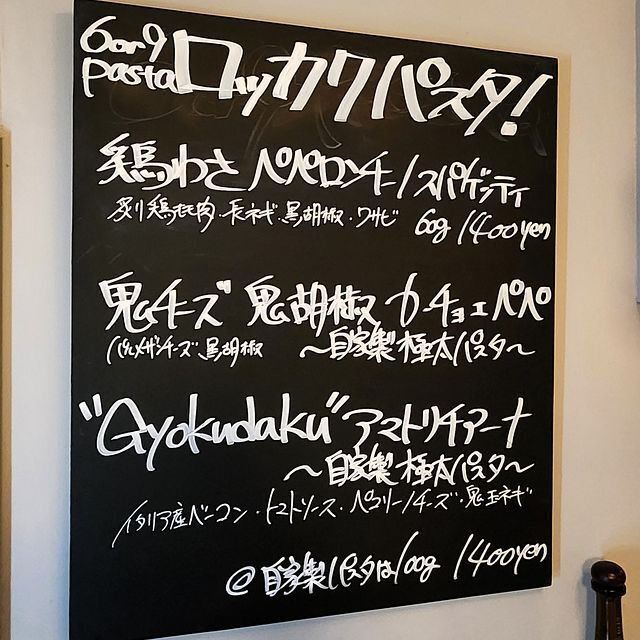 6or9 pasta ロッカクパスタ!
鶏わさ ペペロンチーノ スパゲッティ
炙り鶏もも肉・長ネギ・黒胡椒・ワサビ 60g 1400yen
鬼チーズ 鬼胡椒 カチョエペペ
パルメザンチーズ・黒胡椒 〜自家製 極太パスタ〜
"Gyokudaku" アマトリチァーナ
〜自家製 極太パスタ〜
イタリア産ベーコン・トマトソース・ペコリーノチーズ・鬼玉ネギ
@自家製パスタは100g 1400yen